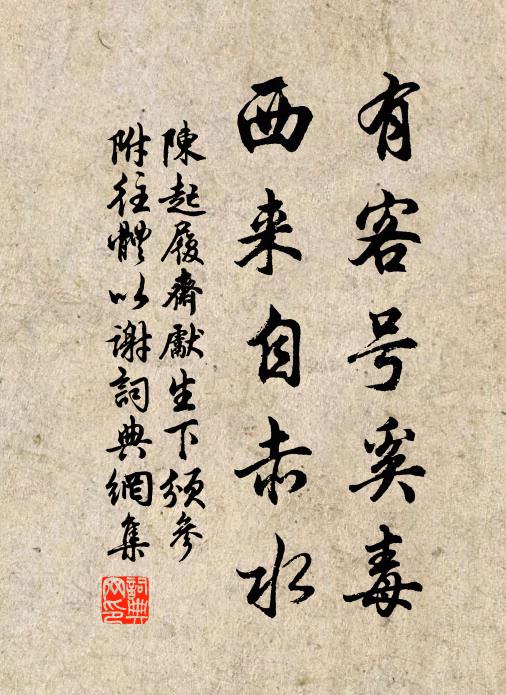 有客号奚毒
西来自赤水
陳起履齋獻生下頒參
附往體以謝詞典網集
詞典网印